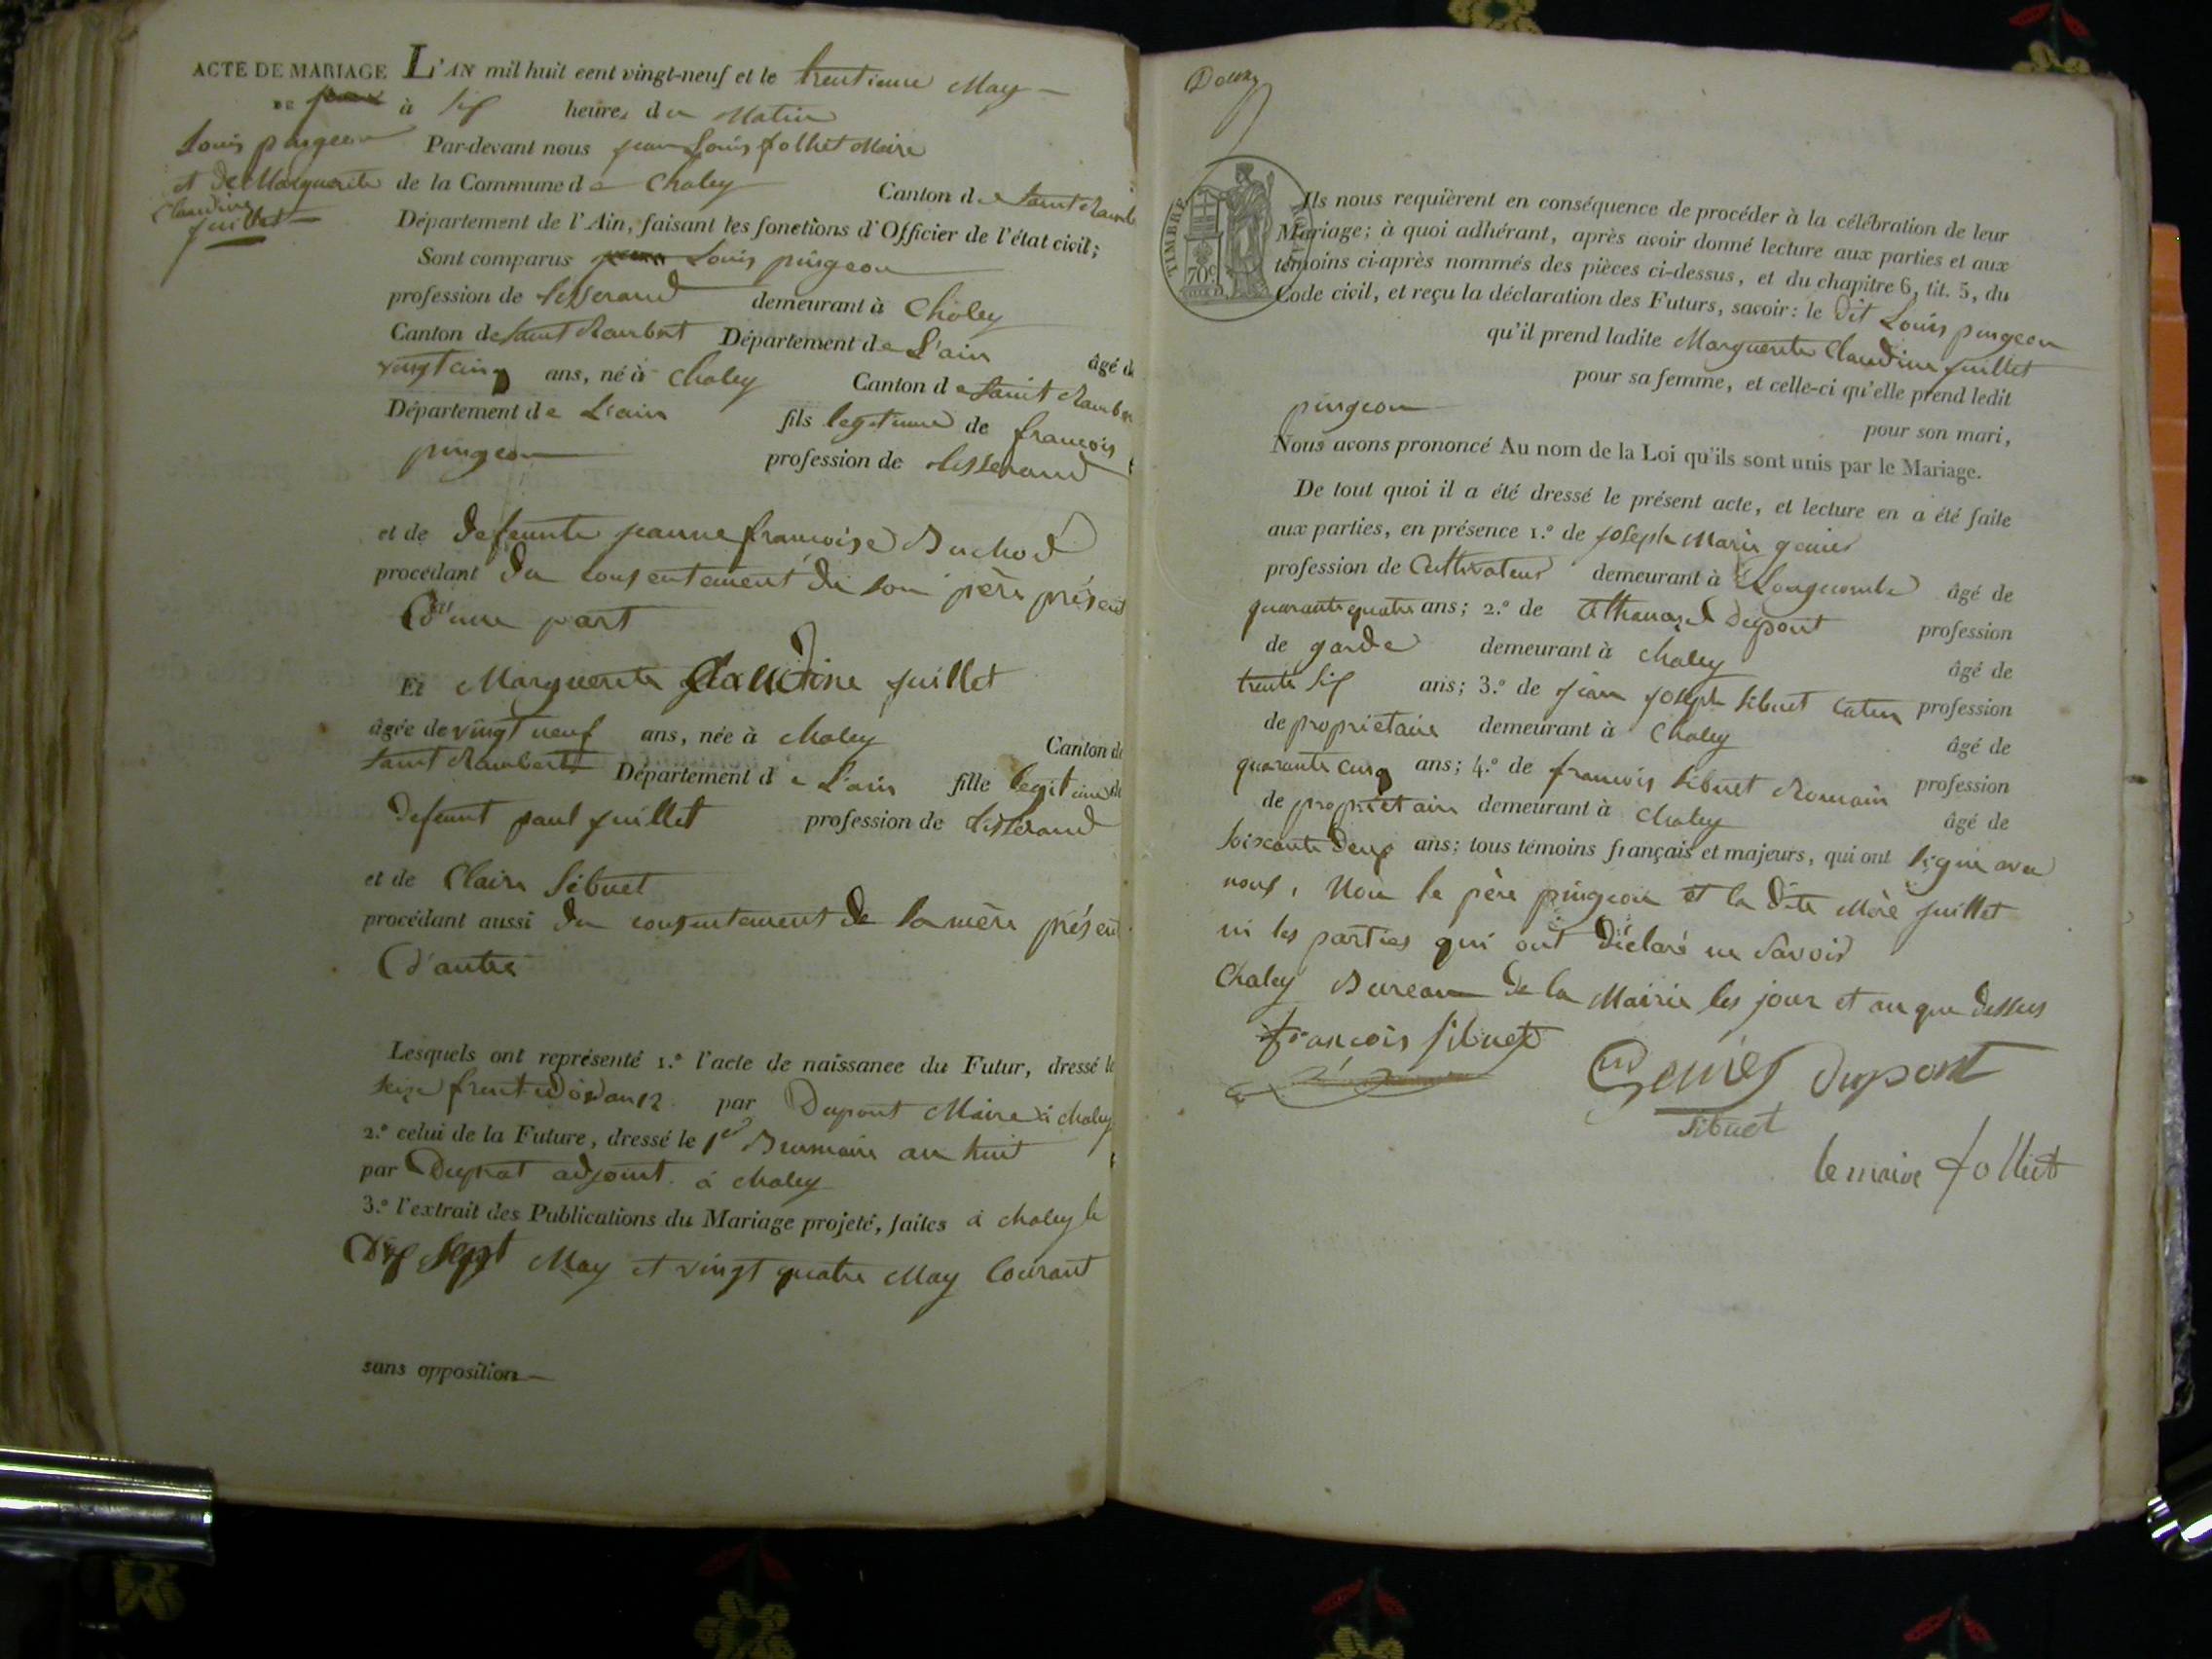 ACTE DE MARIAGE L'AN mil huit cent vingt-neuf et le trentieme May
DE à six heures du Matin
Louis pingeon
et de Marguerite
Claudine
juillet
Par-devant nous jean Louis follhet Maire
de la Commune de Chaley Canton de Saint Ramb
Département de l'Ain, faisant les fonctions d'Officier de l'état civil;
Sont comparus Louis pingeon
profession de tisserand demeurant à Chaley
Canton de Saint Rambert Département de L'ain âgé de
vingt cinq ans, né à Chaley Canton de Saint Rambert
Département de L'ain fils legitime de françois
pingeon profession de tisserand
et de defeunte jeanne françoise Buchod
procédant du consentement de son père présent
d'une part
Et Marguerite Claudine juillet
âgée de vingt neuf ans, née à chaley Canton de
Saint Rambert Département de L'ain fille legitime de
defeunt paul juillet profession de tisserand
et de Claire Sibuet
procédant aussi du consentement de sa mère présent
d'autre
Lesquels ont représenté 1.º l'acte de naissance du Futur, dressé le
seize an 12 par Dupont Maire à chaley
2.º celui de la Future, dressé le 1er Brumaire an huit
par adjoint à chaley
3.º l'extrait des Publications du Mariage projeté, faites à chaley le
Dix Sept May et vingt quatre May Courant
sans opposition
TIMBRE ROYAL
70c
Ils nous requièrent en conséquence de procéder à la célébration de leur
Mariage; à quoi adhérant, après avoir donné lecture aux parties et aux
témoins ci-après nommés des pièces ci-dessus, et du chapitre 6, tit. 5, du
Code civil, et reçu la déclaration des Futurs, savoir: le dit Louis pingeon
qu'il prend ladite Marguerite Claudine juillet
pour sa femme, et celle-ci qu'elle prend ledit
pingeon pour son mari,
Nous avons prononcé Au nom de la Loi qu'ils sont unis par le Mariage.
De tout quoi il a été dressé le présent acte, et lecture en a été faite
aux parties, en présence 1.º de joseph Marie genies
profession de Cultivateur demeurant à Longecombe âgé de
quarante quatre ans; 2.º de Athanase Dupont profession
de garde demeurant à chaley âgé de
trente six ans; 3.º de jean joseph Sibuet profession
de propriétaire demeurant à Chaley âgé de
quarante cinq ans; 4.º de francois Sibuet Romain profession
de propriétaire demeurant à chaley âgé de
soixante deux ans; tous témoins français et majeurs, qui ont signé avec
nous, Non le père pingeon et la dite Mère juillet
ni les parties qui ont déclaré ne savoir
Chaley Bureau de la Mairie les jour et an que dessus
françois Sibuet
Genies Dupont
Sibuet
le maire follhet